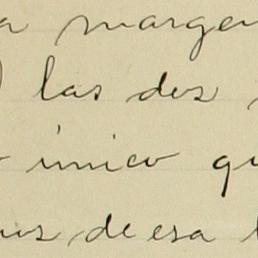 a margen
) las dos
único qu
nos, de esa l